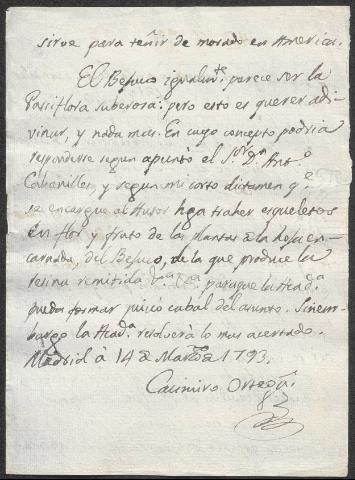 sirve para teñir de morado en America.
El Bejuco igualmte. parece ser la
Passiflora suberosa: pero esto es querer adi-
vinar, y nada mas. En cuyo concepto podria
responderse segun apuntó el Sor. Dn. Anto.
Cabanilles, y segun mi corto dictamen qe.
se encargue al Autor haga traher esqueletos
en flor y fruto de las plantas de la hoja en-
carnada, del Bejuco, de la que produce la
resina remitida &a. &a. para que la Acada.
pueda formar juicio cabal del asunto. Sin em-
bargo la Acada. resolverá lo mas acertado.
Madrid à 14 de Marzo de 1793.
Casimiro Ortega.